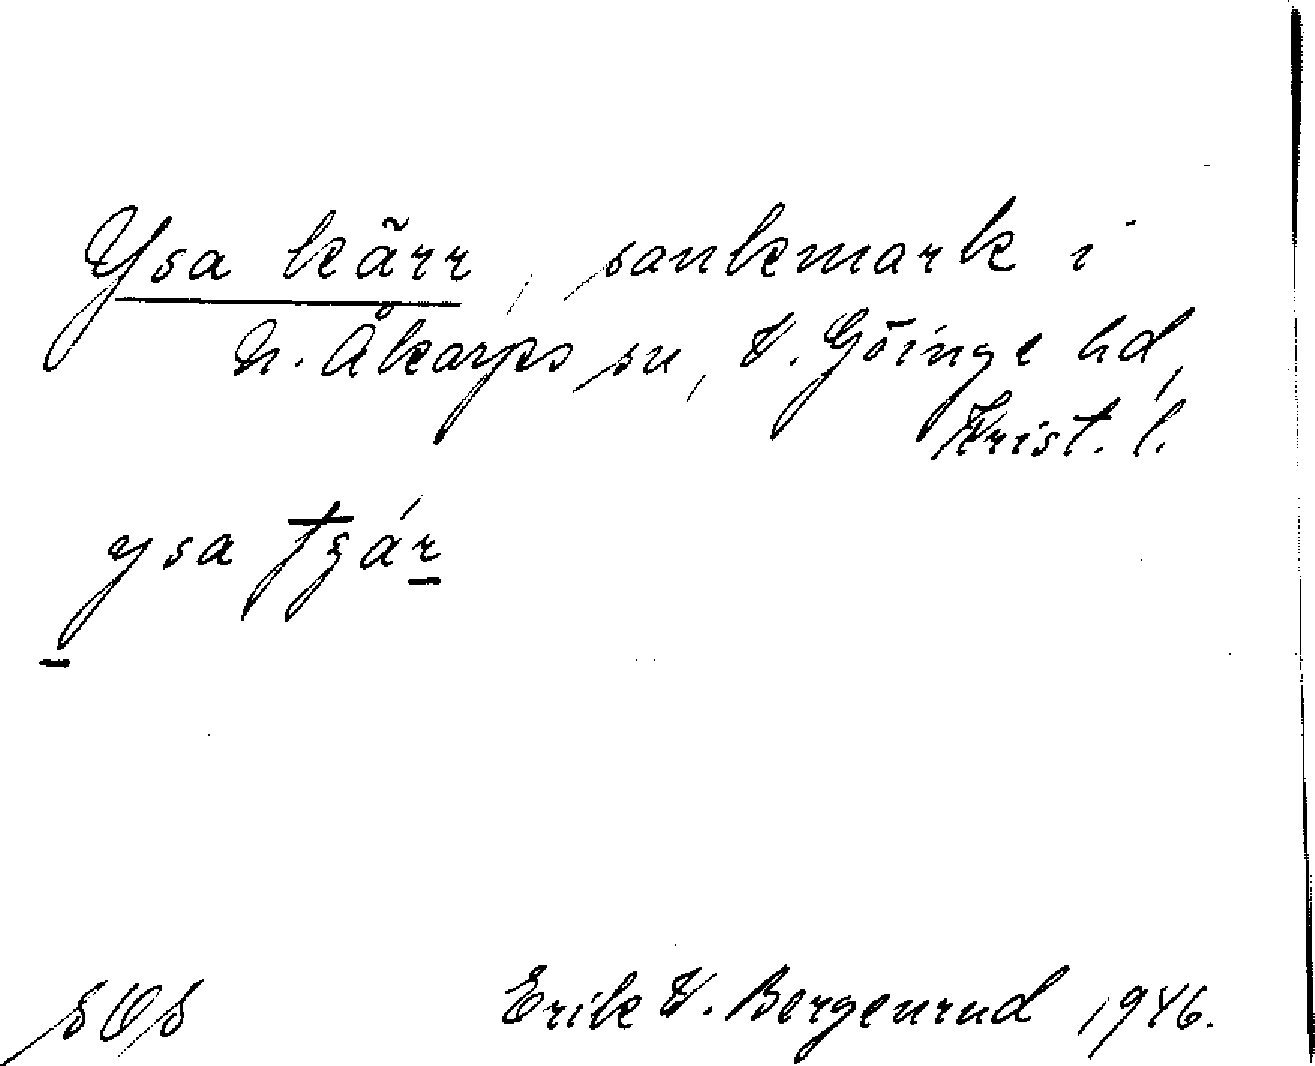 Ysa kärr, sankmark i
N. Åkarps sn, V. Göinge hd,
Krist. l.
ysa
SOS Erik V. Bergenrud 1946.